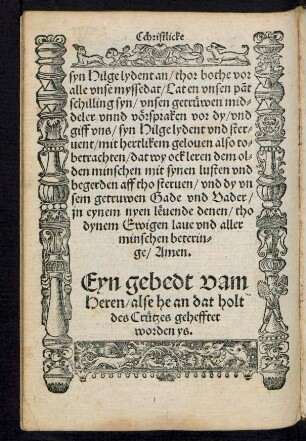 Cchristlicke
syn Hilge lydent an/ thor bothe vor
alle vnse myssedat/ Lat en vnsen pāt
schilling syn/ vnsen getrüwen mid-
deler vnnd vörspraken vor dy/ vnd
giff vns/ syn Hilge lydent vnd ster-
uent/ mit hertlikem gelouen also to-
betrachten/ dat wy ock leren dem ol-
den minschen mit synen lusten vnd
begerden aff tho steruen/ vnd dy vn
sem getruwen Gade vnd Vader/
jn eynem nyen leuende denen/ tho
dynem Ewigen laue vnd aller
minschen beterin-
ge/ Amen.
Eyn gebedt vam
Heren/ alse he an dat holt
des Crützes gehefftet
worden ys.